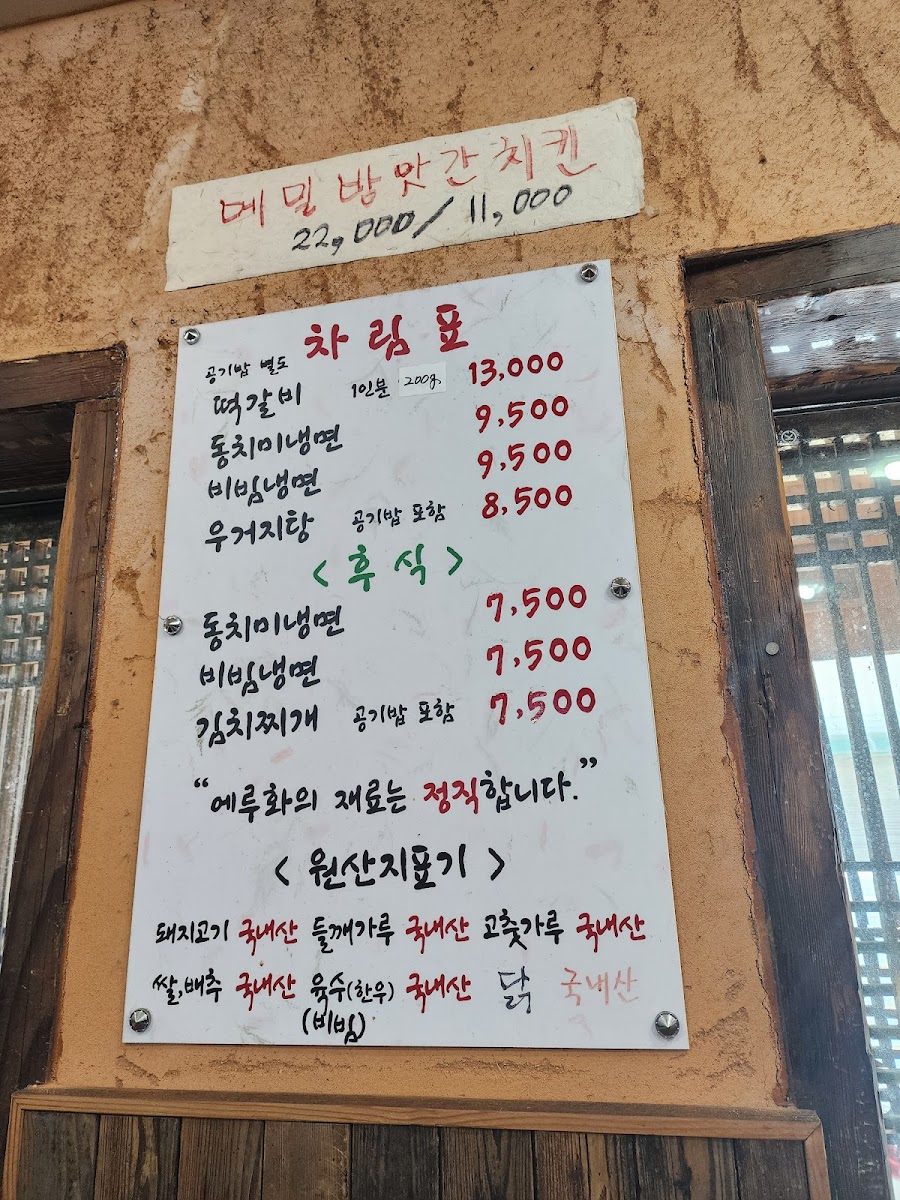 메밀밤맛간치킨
22,000/11,000
차림표
공기밥 별도
떡갈비 1인분 200g 13,000
동치미냉면 9,500
비빔냉면 9,500
우거지탕 공기밥 포함 8,500
<후식>
동치미냉면 7,500
비빔냉면 7,500
김치찌개 공기밥 포함 7,500
“에루화의 재료는 정직합니다.”
<원산지표기>
돼지고기 국내산 들깨가루 국내산 고춧가루 국내산
쌀,배추 국내산 육수(한우) 국내산 닭 국내산
(비빔)